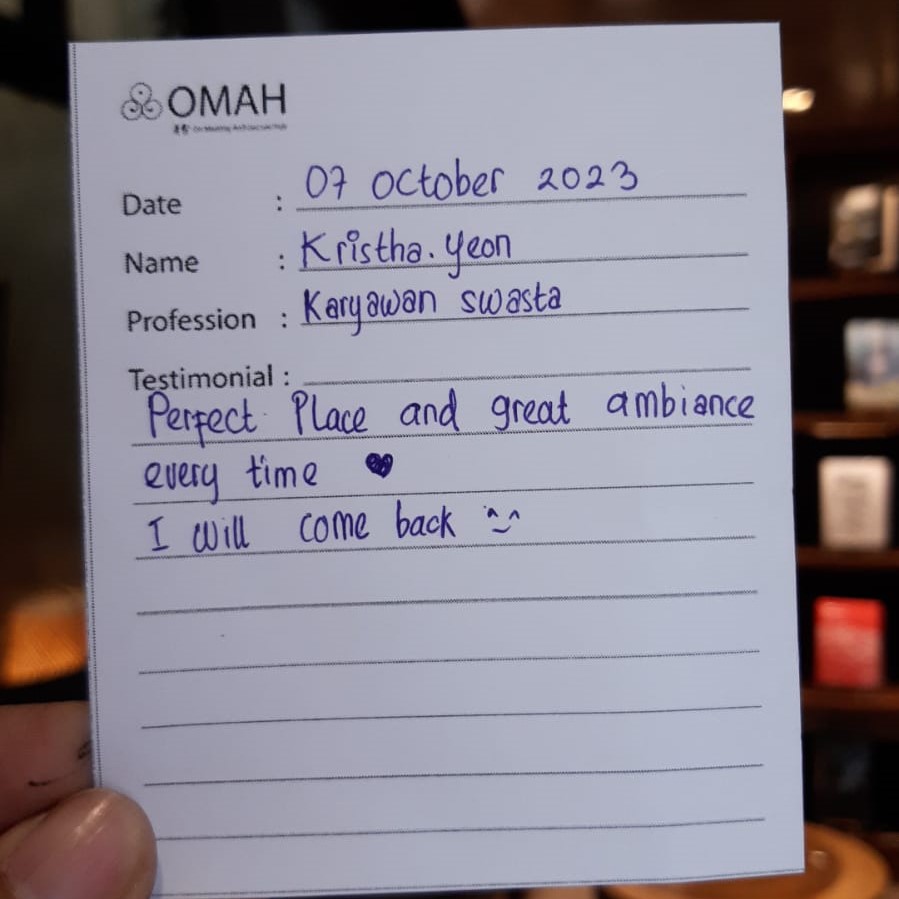 OMAH
Date : 07 October 2023
Name : Kristha.yeon
Profession : Karyawan swasta
Testimonial :
Perfect Place and great ambiance
every time ♥
I will come back ^‿^